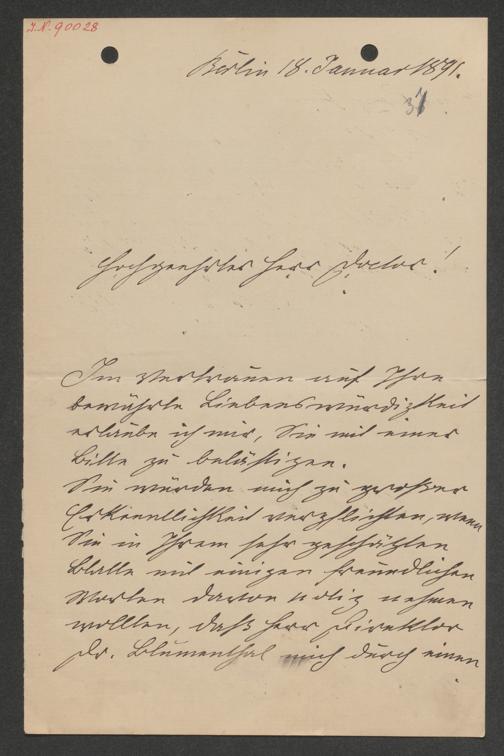 I.N. 90028
Berlin 18. Januar 1891.
31
Hochgeehrter Herr Doctor!
Im Vertrauen auf Ihre
bewährte Liebenswürdigkeit
erlaube ich mir, Sie mit einer
Bitte zu belästigen.
Sie würden mich zu großer
Erkenntlichkeit verpflichten, wenn
Sie in Ihrem sehr geschätzten
Blatte mit einigen freundlichen
Worten davon Notiz nehmen
wollten, daß Herr Direktor
Dr. Blumenthal mich durch einen